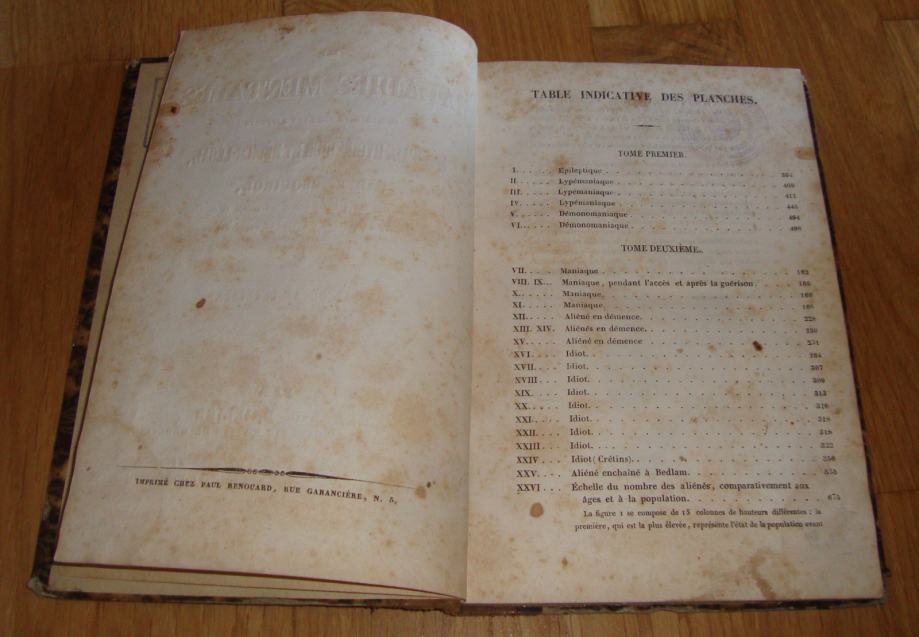 IMPRIMÉ CHEZ PAUL RENOUARD, RUE GARANCIÈRE, N. 5.
TABLE INDICATIVE DES PLANCHES.
TOME PREMIER.
I. . . . . . Épileptique . . . 
II. . . . . . Lypémaniaque . . . 409
III. . . . . . Lypémaniaque . . . 411
IV. . . . . . Lypémaniaque . . . 445
V. . . . . . Démonomaniaque . . . 494
VI. . . . . . Démonomaniaque . . . 498
TOME DEUXIÈME.
VII. . . . . Maniaque . . . 162
VIII. IX. . . Maniaque, pendant l'accès et après la guérison. 
X. . . . . . Maniaque. . . . 168
XI. . . . . . Maniaque. . . . 
XII. . . . . Aliéné en démence. . . . 228
XIII. XIV. Aliénés en démence. . . . 230
XV. . . . . Aliéné en démence . . . 231
XVI. . . . . Idiot. . . . 
XVII. . . . . Idiot. . . . 307
XVIII . . . . Idiot. . . . 309
XIX. . . . . Idiot. . . . 313
XX. . . . . . Idiot. . . . 316
XXI. . . . . Idiot. . . . 318
XXII. . . . . Idiot. . . . 318
XXIII . . . . Idiot. . . . 322
XXIV . . . . Idiot (Crétins). . . . 
XXV. . . . . Aliéné enchaîné à Bedlam. . . . 
XXVI . . . . Échelle du nombre des aliénés, comparativement aux
âges et à la population. . . . 675
La figure 1 se compose de 15 colonnes de hauteurs différentes : la
première, qui est la plus élevée, représente l'état de la population avant